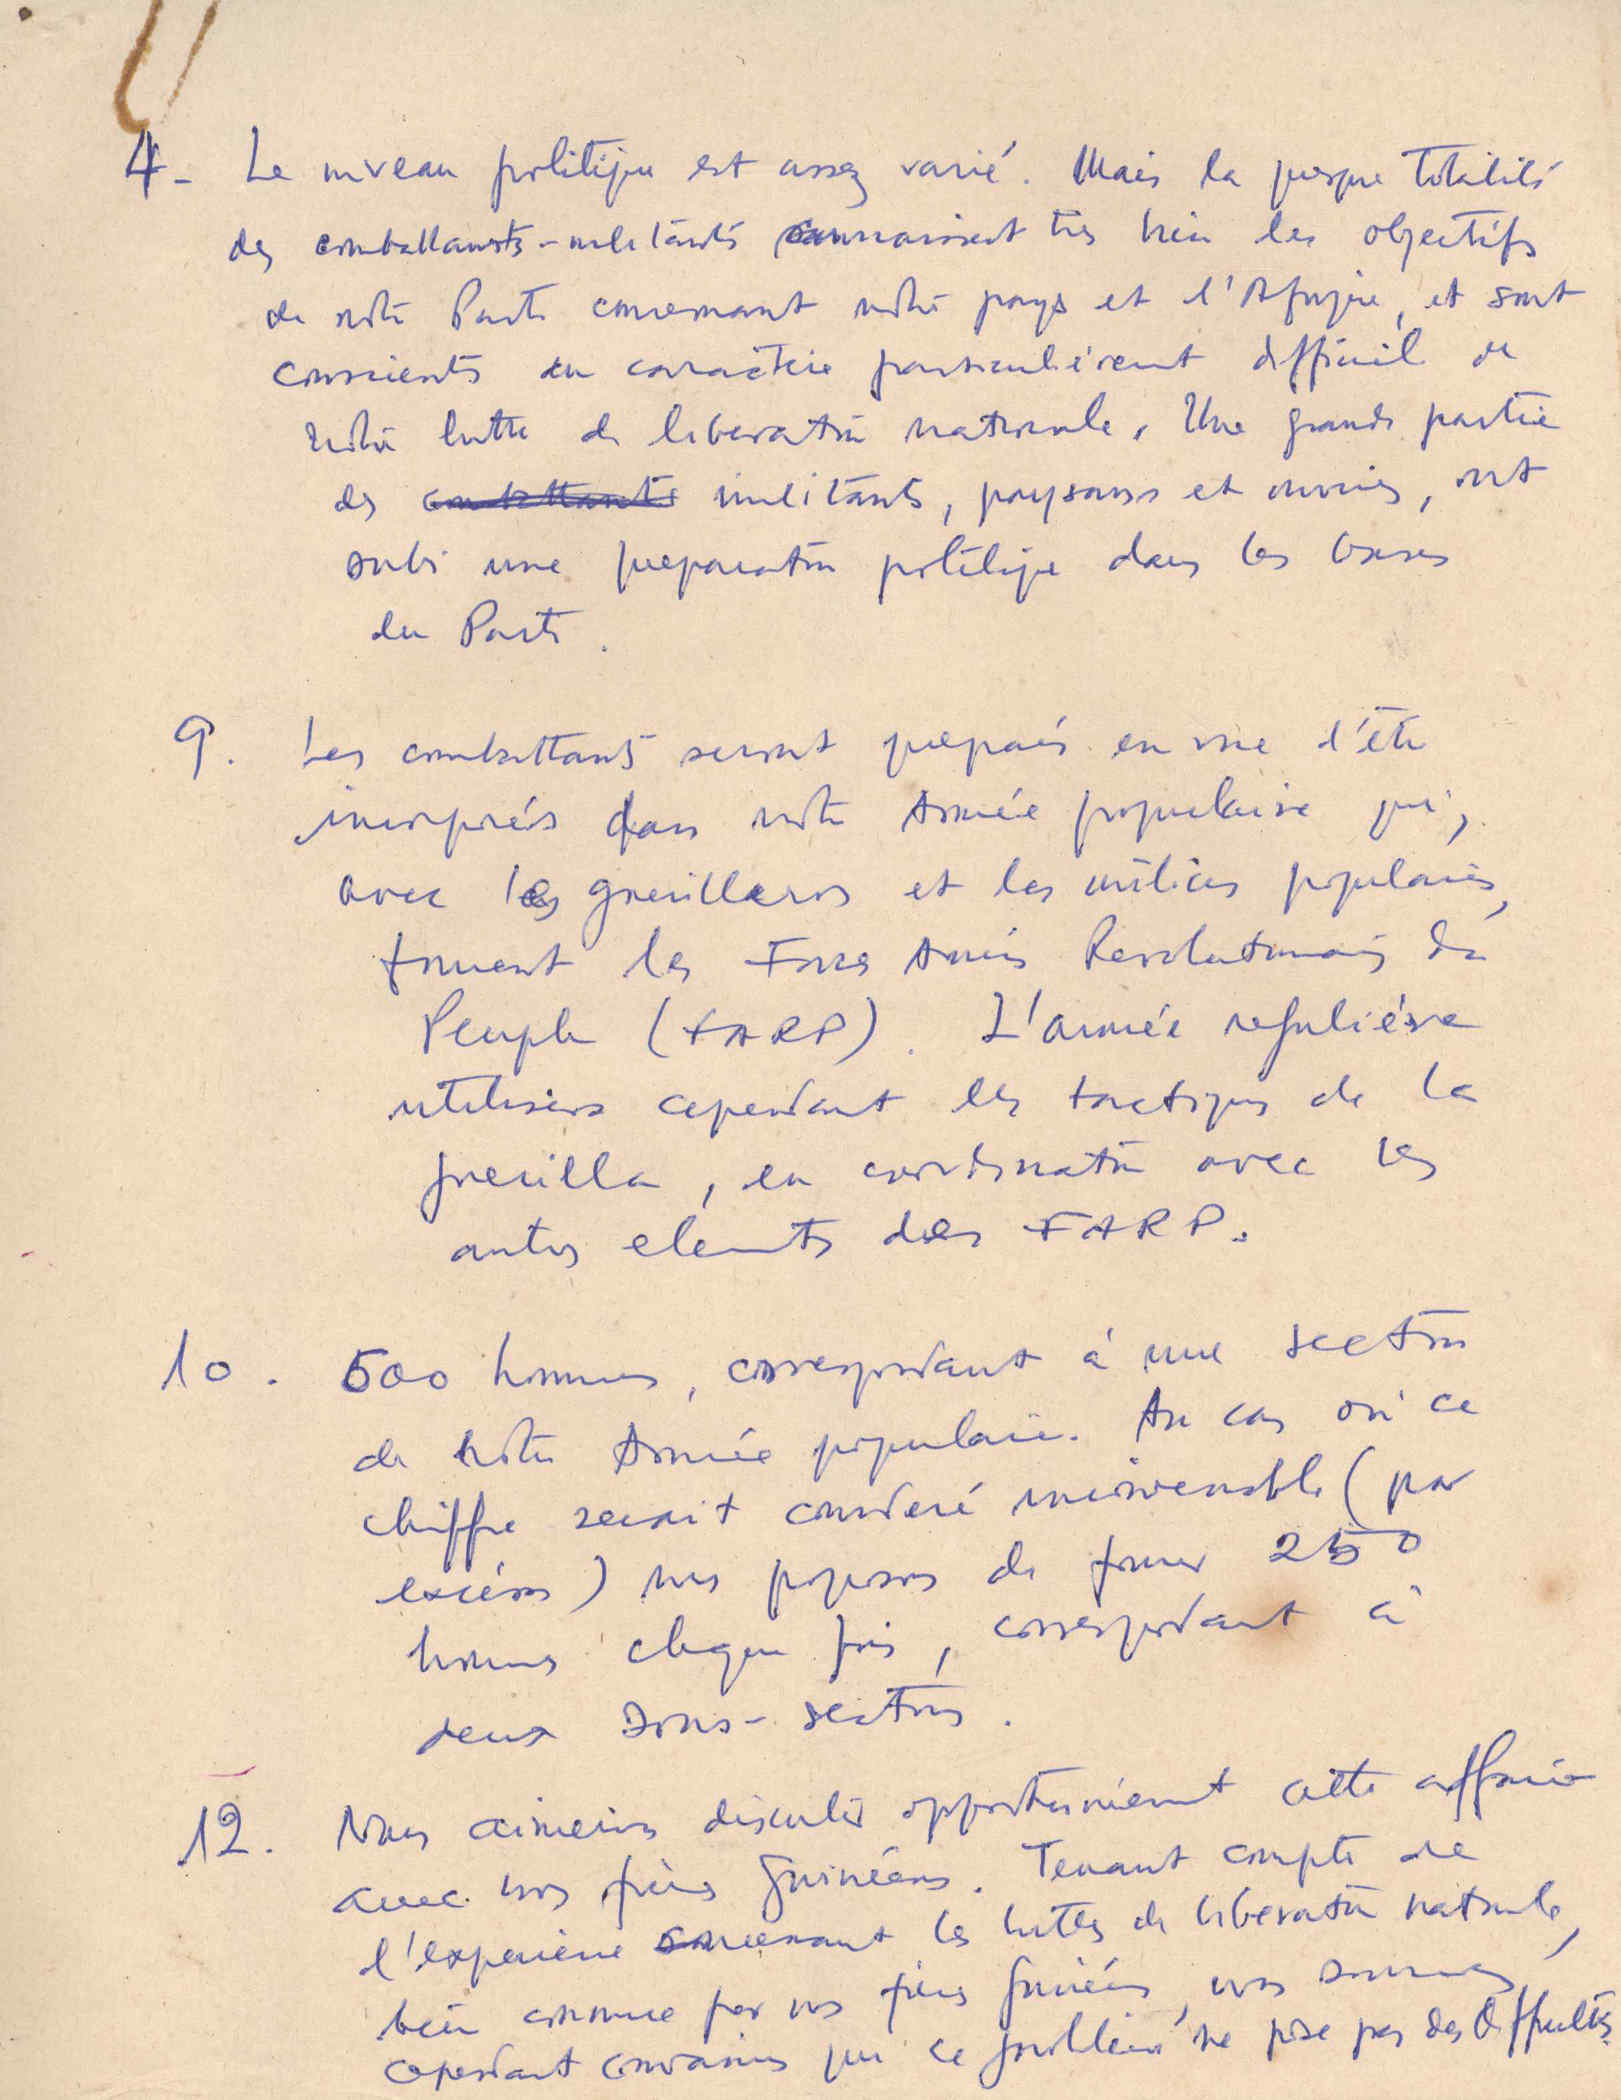 4- Le niveau politique est assez varié. Mais la presque totalité
des combattants-militants connaissent très bien les objectifs
de notre Parti concernant notre pays et l'Afrique, et sont
conscients du caractère particulièrement difficil de
notre lutte de liberation nationale. Une grande partie
des combattants militants, paysans et ouvriers, ont
subi une preparation politique dans les bases
du Parti.
9. Les combattants seront preparés en vue d'être
incorporés dans notre Armée populaire qui,
avec les guerilleros et les milices populaires,
forment les Forces Armées Revolutionnaires du
Peuple (FARP). L'armée regulière
utilisera cependant les tactiques de la
guerilla, en coordination avec les
autres elements des FARP.
10. 500 hommes, correspondant à une section
de notre Armée populaire. Au cas où ce
chiffre serait consideré inconvenable (par
excéss) nous proposons de former 250
hommes chaque fois, correspondant à
deux sous-sections.
12. Nous aimerions discuter opportunément cette affaire
avec nos frères guinéens. Tenant compte de
l'experience concernant les luttes de liberation nationale,
bien connue par nos frères guinéens, nous sommes
cependant convaincus que ce problème ne pose pas des difficultés.